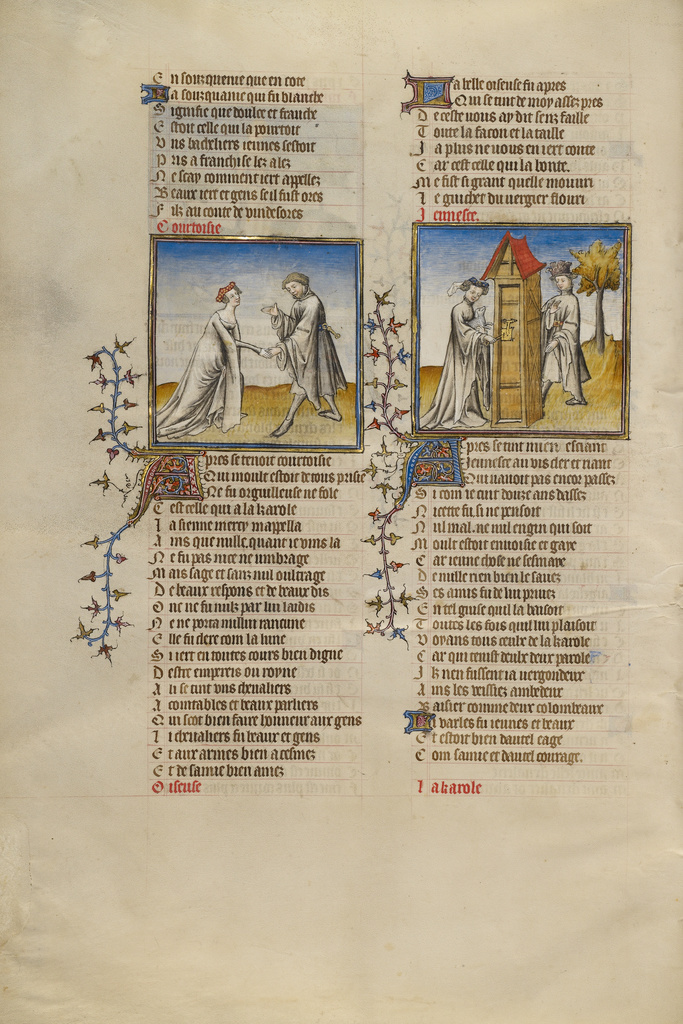 En sourquenie que en cote
La sourquanie qui fu blanche
Signifie que doulce et franche
Estoit celle qui la portoit
Uns bacheliers iennes sestoit
Pris a franchise lez a lez
Ne scay comment iert appellez
Beaux iert et gens se il fust ores
Filz au conte de vindesores
Courtoisie
Apres se tenoit courtoisie
Qui moult estoit de tous prisie
Ne fu orguilleuse ne fole
Cest celle qui a la karole
La sienne mercy mapella
Ains que nulle quant ie vins la
Ne fu pas nice ne umbrage
Mais sage et sanz nul oultrage
De beaux respons et de beaux dis
Onc ne fu nulz par lui laidis
Ne ne porta nullui rancune
Elle fu clere com la lune
Si iert en toutes cours bien digne
Destre empereis ou royne
A li se tint uns chevaliers
Acointables et beaux parliers
Qui scot bien faire honneur aux gens
Li chevaliers fu beaux et gens
Et aux armes bien acesmez
Et de samie bien amez
Oiseuse
La belle oiseuse fu apres
Qui se tint de moy assez pres
De ceste vous ay dit senz faille
Toute la facon et la taille
Ja plus ne vous en iert conte
Car cest celle qui la bonte
Me fist si grant quelle mouuri
Le guichet du vergier flouri
Jeunesse.
Apres se tint mien esciant
Jeunesse au vis cler et riant
Qui navoit pas encor passez
Si com ie cuit douze ans dassez
Nicette fu si ne pensoit
Nul mal ne nul engin qui soit
Moult estoit envoisie et gaye
Car ienne chose ne sesmaye
De nulle rien bien le savez
Ses amis fu de lui privez
En tel guise quil la baisoit
Toutes les fois quil lui plaisoit
Voyans tous ceulx de la karole
Car qui tenist deulx deux parole
Ilz nen fussent ia vergondeux
Ains les veissiez ambedeux
Baisier comme deux colombeaux
Li varles fu iennes et beaux
Et estoit bien dautel eage
Com samie et dautel courage.
La karole